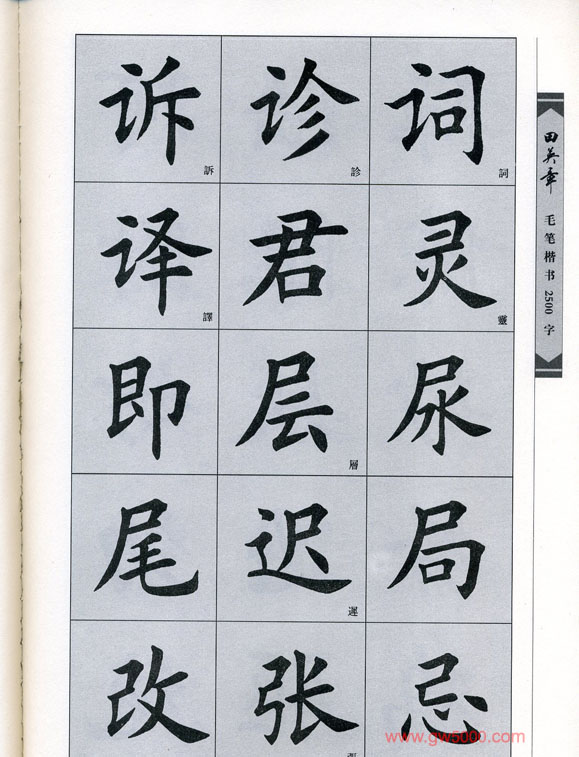 诉 诊 词
訴 診 詞
译 君 灵
譯 靈
即 层 尿
層
尾 迟 局
遲
改 张 忌
田英章
毛笔楷书 2500 字
www.gw5000.com